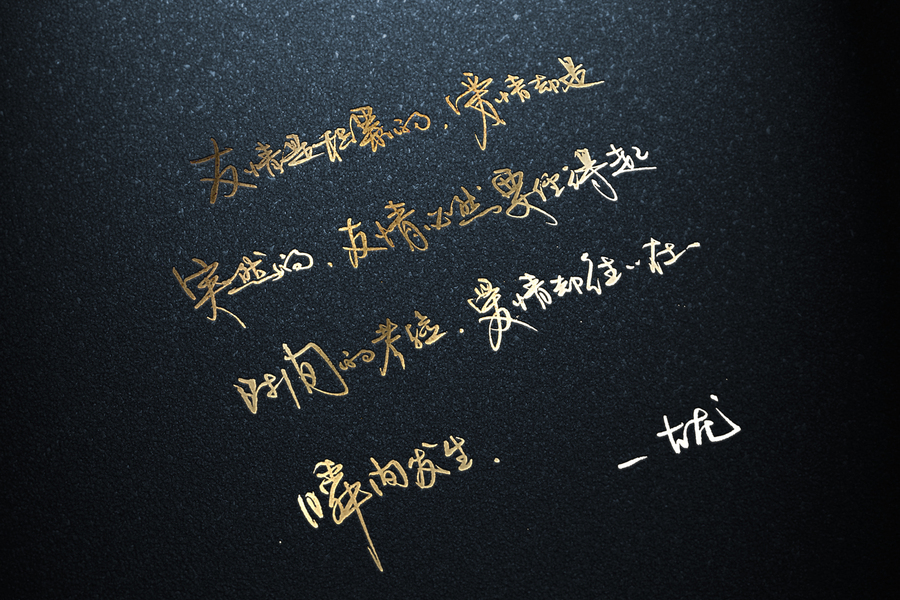 友情是积累的,爱情却是
突然的,友情必然要经得起
时间的考验,爱情却往往在
瞬间发生.